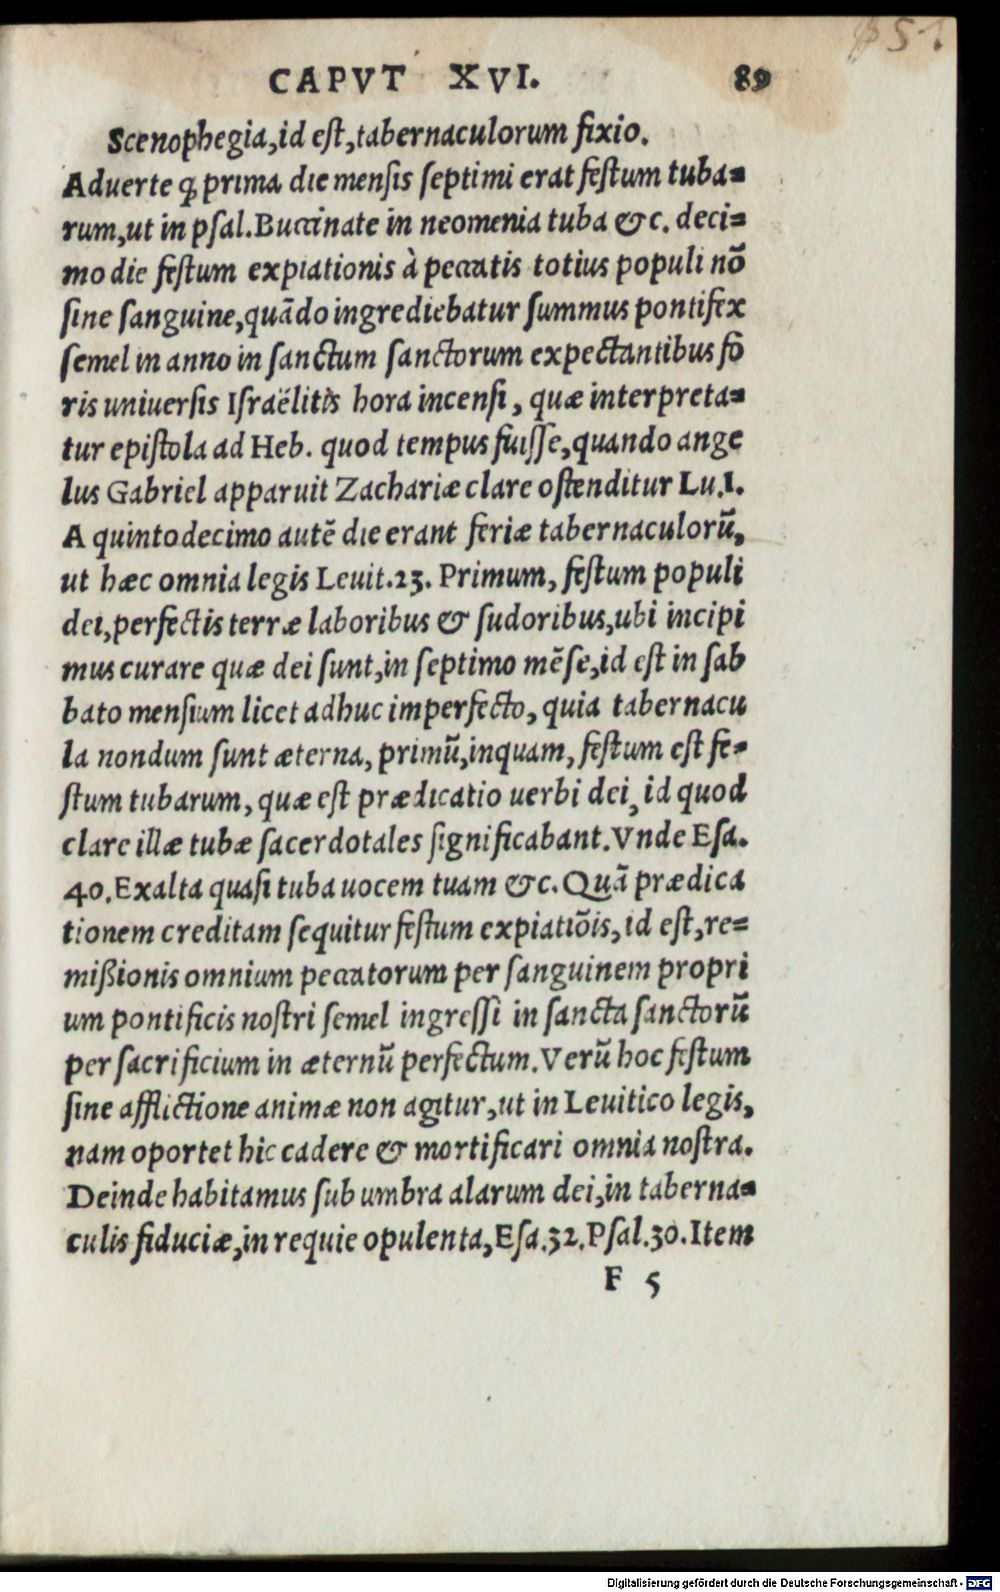 CAPVT XVI. 89
Scenophegia, id est, tabernaculorum fixio.
Aduerte ꝙ prima die mensis septimi erat festum tuba-
rum, ut in psal. Buccinate in neomenia tuba &c. deci-
mo die festum expiationis à peccatis totius populi nō
sine sanguine, quādo ingrediebatur summus pontifex
semel in anno in sanctum sanctorum expectantibus fo
ris uniuersis Israëlitis hora incensi, quæ interpreta-
tur epistola ad Heb. quod tempus fuisse, quando ange
lus Gabriel apparuit Zachariæ clare ostenditur Lu.1.
A quintodecimo autē die erant feriæ tabernaculorū,
ut hæc omnia legis Leuit.23. Primum, festum populi
dei, perfectis terræ laboribus & sudoribus, ubi incipi
mus curare quæ dei sunt, in septimo mēse, id est in sab
bato mensium licet adhuc imperfecto, quia tabernacu
la nondum sunt æterna, primū, inquam, festum est fe-
stum tubarum, quæ est prædicatio uerbi dei, id quod
clare illæ tubæ sacerdotales significabant. Vnde Esa.
40. Exalta quasi tuba uocem tuam &c. Quā prædica
tionem creditam sequitur festum expiatiōis, id est, re-
mißionis omnium peccatorum per sanguinem propri
um pontificis nostri semel ingressi in sancta sanctorū
per sacrificium in æternū perfectum. Verū hoc festum
sine afflictione animæ non agitur, ut in Leuitico legis,
nam oportet hic cadere & mortificari omnia nostra.
Deinde habitamus sub umbra alarum dei, in taberna-
culis fiduciæ, in requie opulenta, Esa.32. Psal.30. Item
F 5
Digitalisierung gefördert durch die Deutsche Forschungsgemeinschaft - DFG